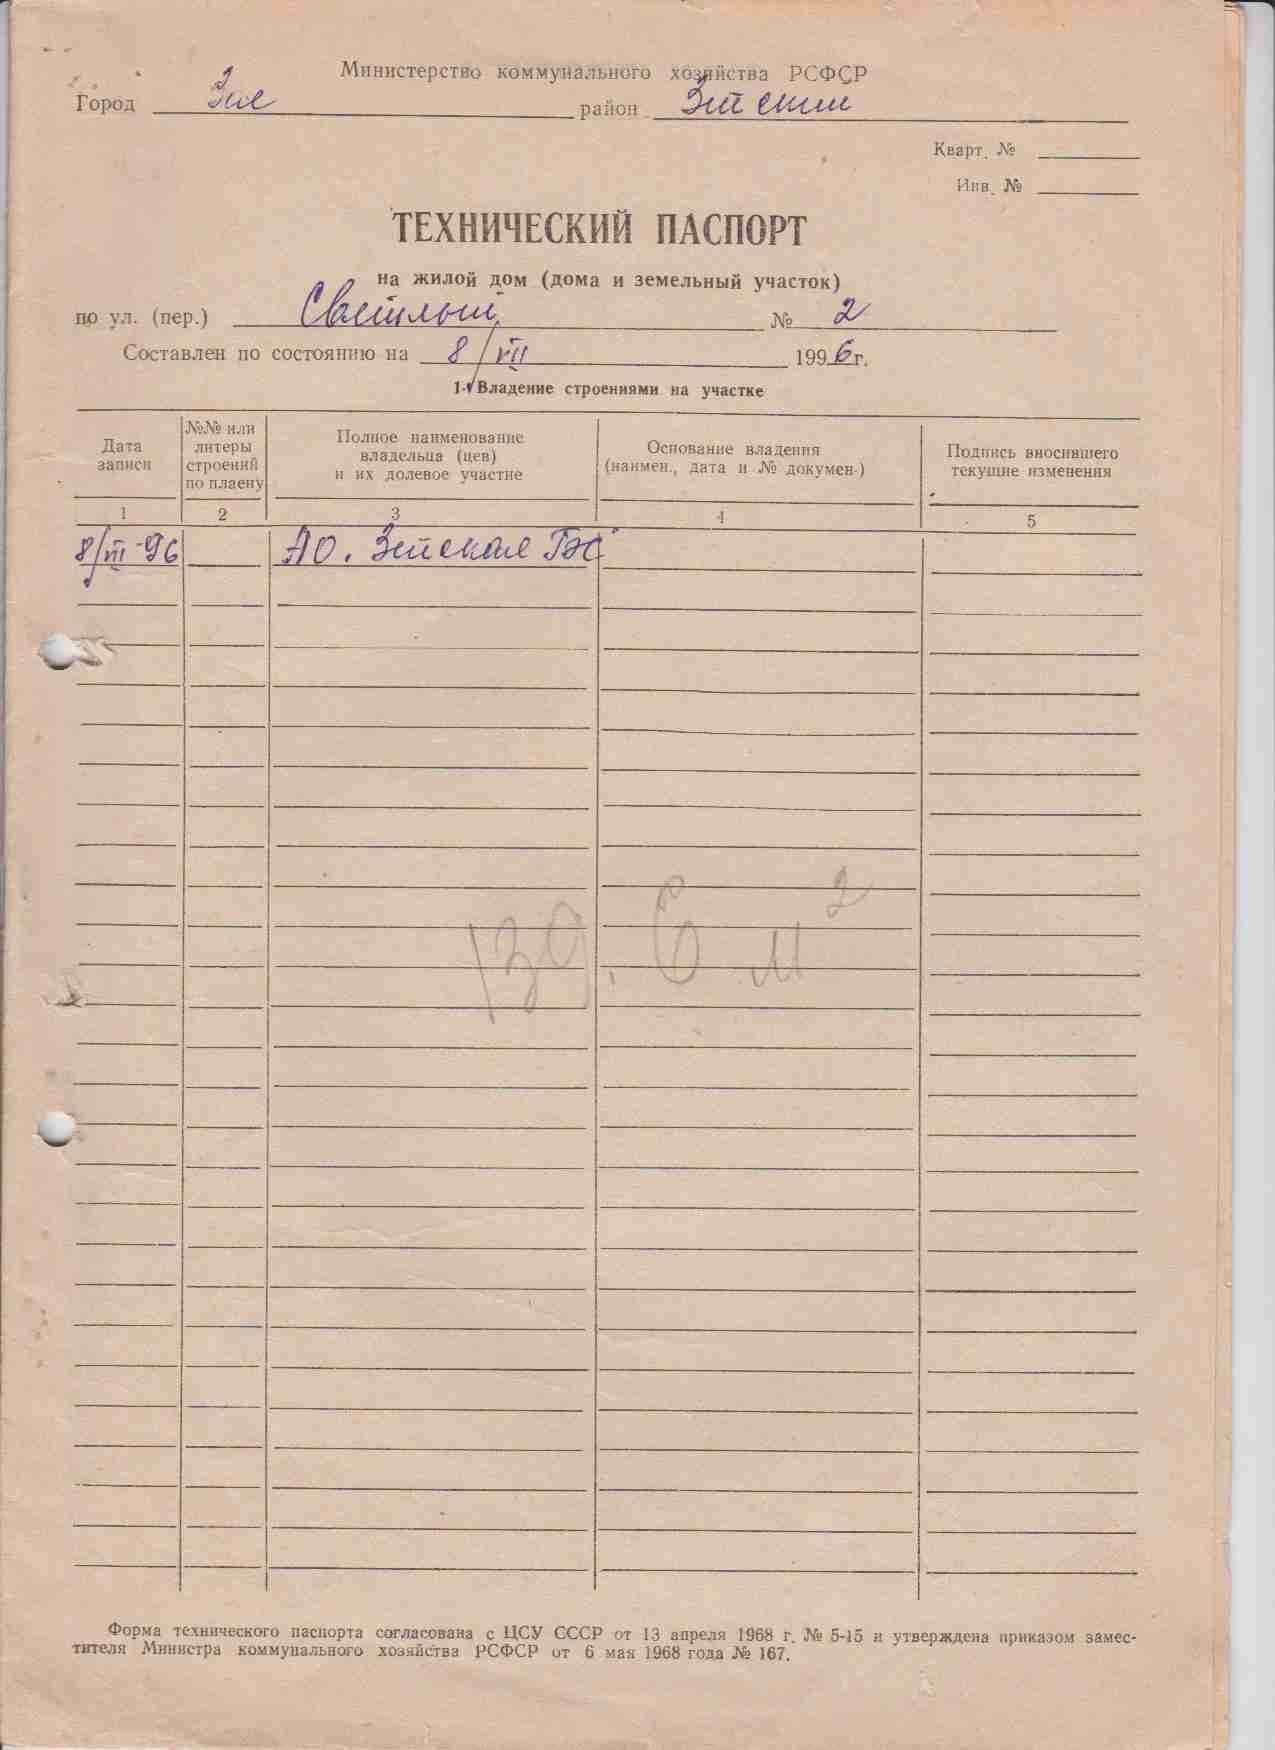 Министерство коммунального хозяйства РСФСР
Город Зея район Зейский
Кварт. №
Инв. №
ТЕХНИЧЕСКИЙ ПАСПОРТ
на жилой дом (дома и земельный участок)
по ул. (пер.) Светлый № 2
Составлен по состоянию на 8/VII 1996г.
1. Владение строениями на участке
Дата записи
№№ или литеры строений по плаену
Полное наименование владельца (цев) и их долевое участие
Основание владения (наимен., дата и № докумен-)
Подпись вносившего текущие изменения
1 2 3 4 5
8/VII-96 АО. Зейская ГЭС
139.6 м²
Форма технического паспорта согласована с ЦСУ СССР от 13 апреля 1968 г. № 5-15 и утверждена приказом замес-
тителя Министра коммунального хозяйства РСФСР от 6 мая 1968 года № 167.